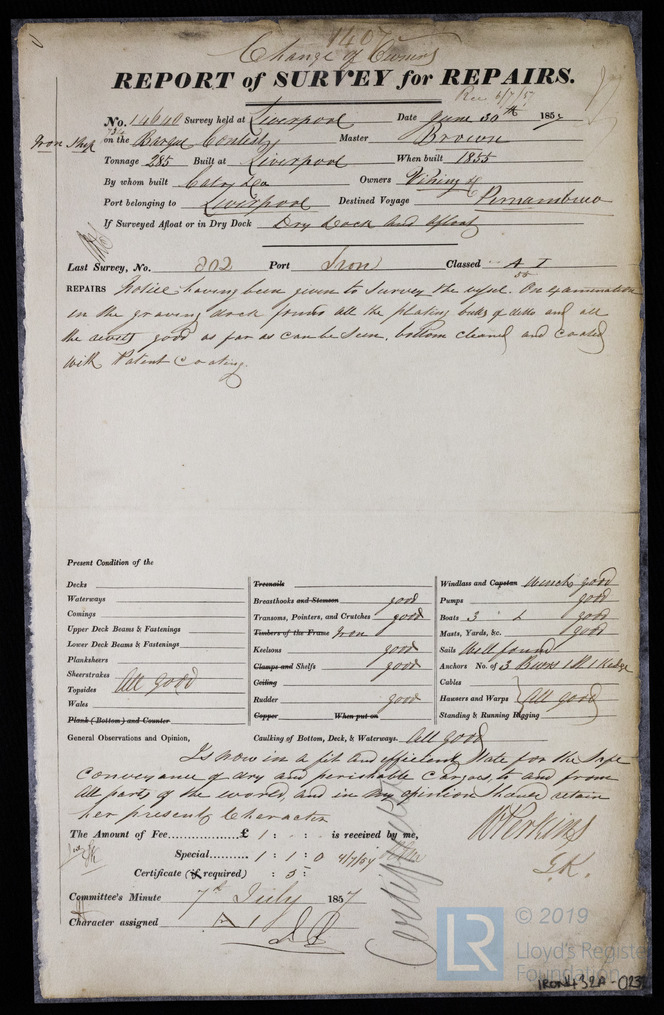 1407
Change of Owners
REPORT of SURVEY for REPAIRS.
Rec 6/7/57
No. 14640 Survey held at Liverpool Date June 30th 1857
Iron Ship on the Barque Contest Master Brown
Tonnage 285 Built at Liverpool When built 1855
By whom built Cato & Co Owners
Port belonging to Liverpool Destined Voyage Pernambuco
If Surveyed Afloat or in Dry Dock Dry Dock and afloat
Last Survey, No. 202 Port Iron Classed A I
55
REPAIRS Notice having been given to survey the vessel. On Examination
in the graving dock found all the plating butts of ditto and all
the rivets good as far as can be seen, bottom cleaned and coated
with Patent Coating.
Present Condition of the
Decks
Waterways
Comings
Upper Deck Beams & Fastenings
Lower Deck Beams & Fastenings
Planksheers
Sheerstrakes
Topsides All good
Wales
Plank (Bottom) and Counter
Treenails
Breasthooks and Stemson good
Transoms, Pointers, and Crutches good
Timbers of the Frame Iron
Keelsons good
Clamps and Shelfs good
Ceiling
Rudder good
Copper When put on
Windlass and Capstan Winch good
Pumps good
Boats 3 good
Masts, Yards, &c. good
Sails Well found
Anchors No. of 3 Bowers 1 St 1 Kedge
Cables
Hawsers and Warps All good
Standing & Running Rigging
General Observations and Opinion, Caulking of Bottom, Deck, & Waterways. All good
Is now in a fit and efficient state for the safe
conveyance of dry and perishable cargoes, to and from
all parts of the world, and in my opinion should retain
her present Character
The Amount of Fee £ 1 : - : - is received by me,
Special 1 : 1 : 0 4/7/57
Certificate (if required) : 5 :
W Perkins
J.K.
Committee's Minute 7th July 1857
Character assigned A 1
LR
© 2019
Lloyd's Register
Foundation
IRON432A-023